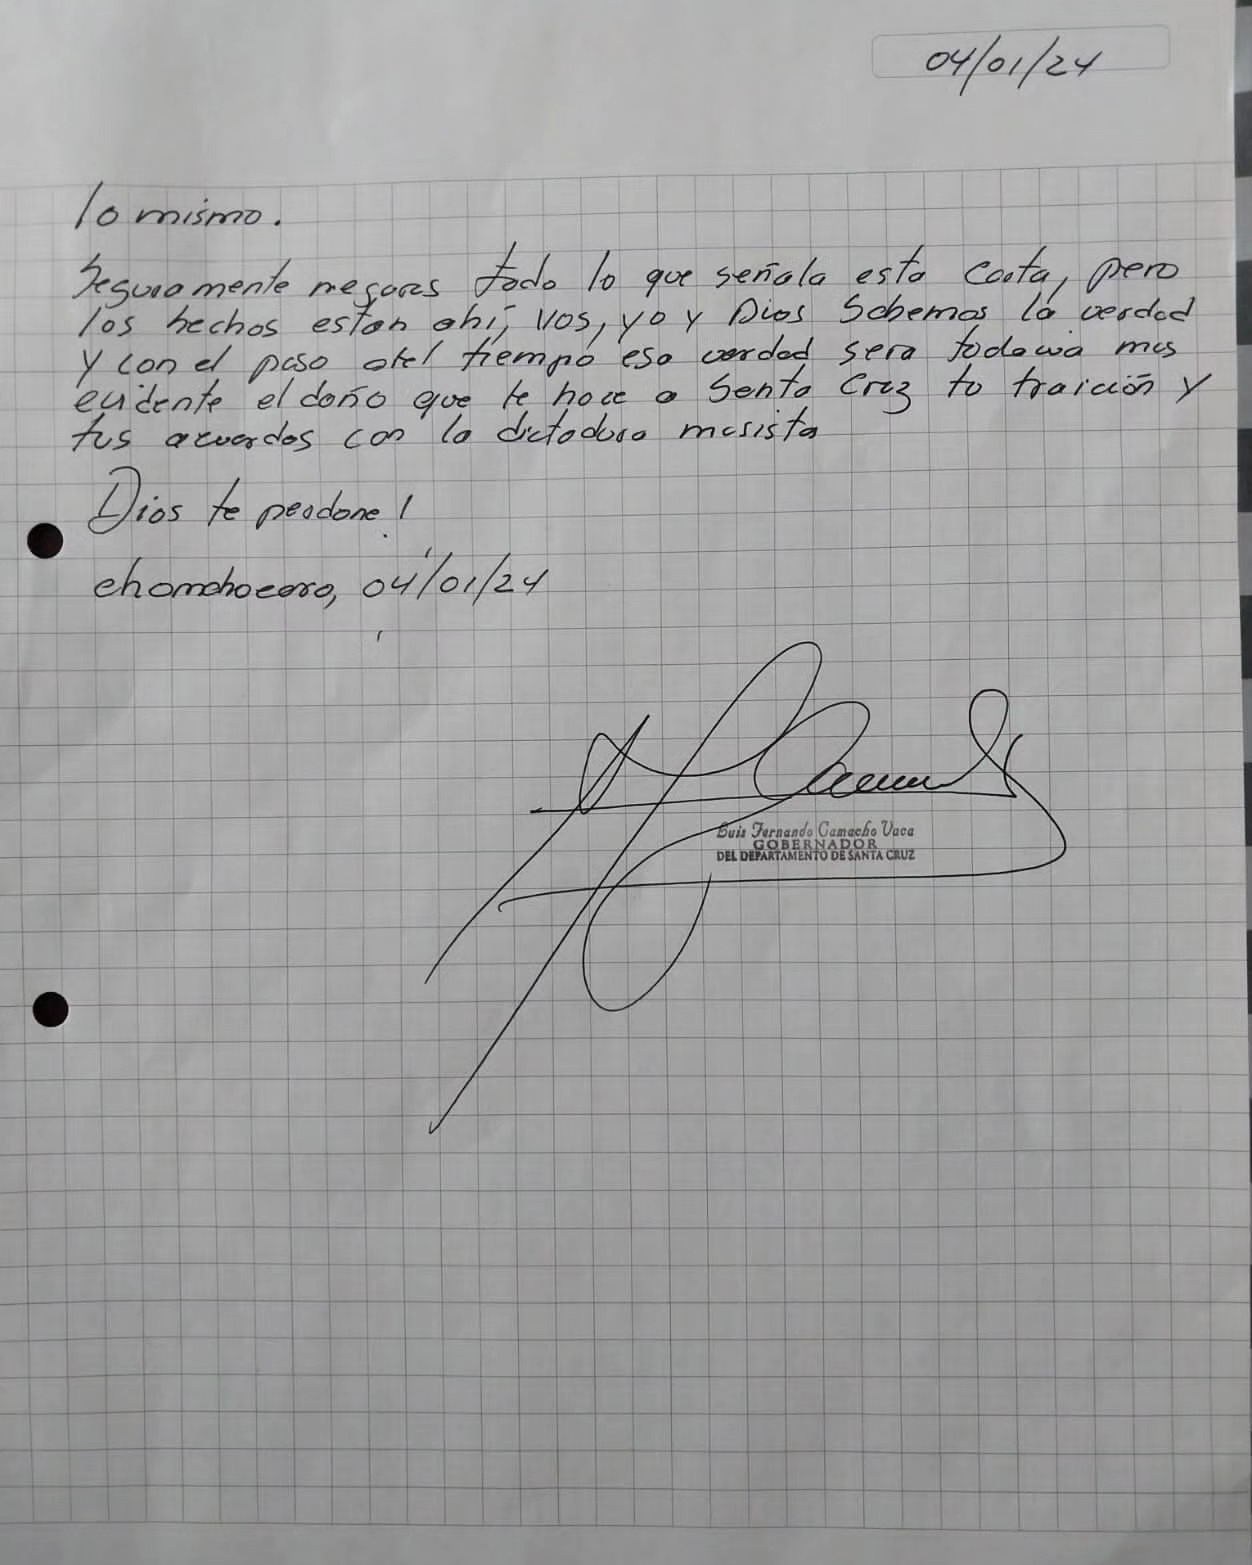 04/01/24
lo mismo.
Seguramente negaras todo lo que señala esta carta, pero
los hechos estan ahí, vos, yo y Dios Sabemos la verdad
y con el paso del tiempo esa verdad sera todavia mas
evidente el daño que le hace a Santa Cruz tu traición y
tus acuerdos con la dictadura masista
Dios te perdone!
chonchocoro, 04/01/24
Luis Fernando Camacho Vaca
GOBERNADOR
DEL DEPARTAMENTO DE SANTA CRUZ